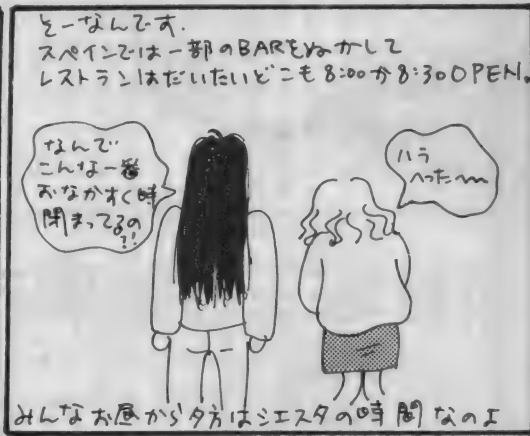 そーなんです.
スペインでは一部のBARをぬかして
レストランはだいたいどこも8:00か8:30OPEN。
ハラ
へった〜
なんで
こんな一番
おなかすく時
閉まってるの
?!
みんなお昼から夕方はシエスタの時間なのよ